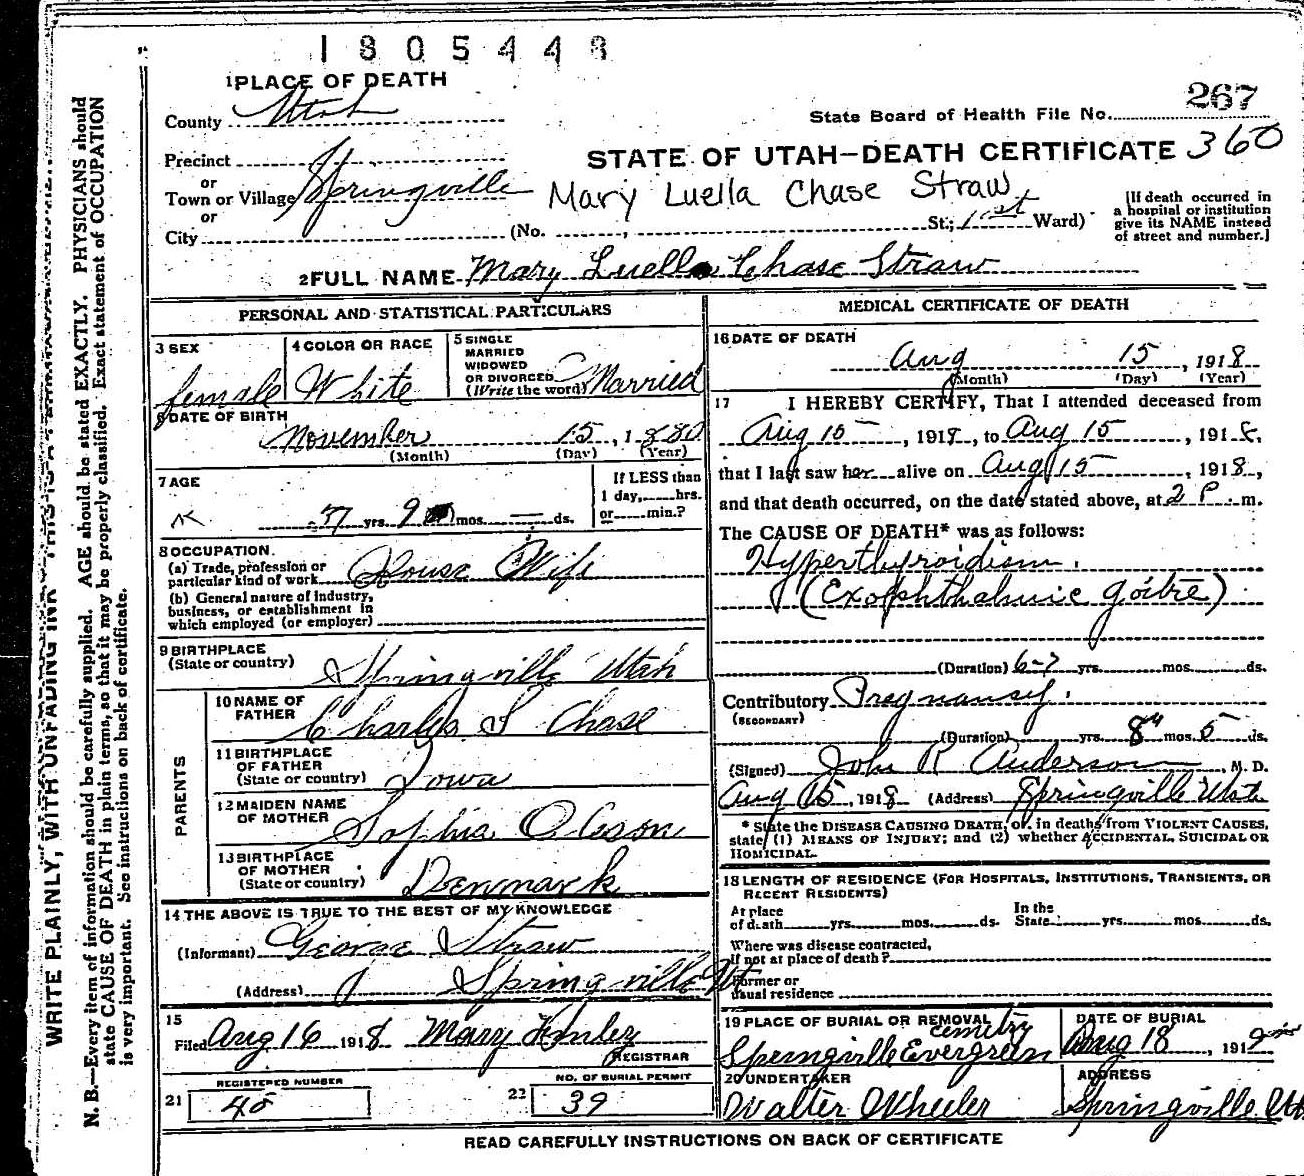 1805448
1 PLACE OF DEATH
County Utah
267
State Board of Health File No.
Precinct
STATE OF UTAH—DEATH CERTIFICATE 360
or
Town or Village Springville
Mary Luella Chase Straw
or
City (No. , St.; 1st Ward)
[If death occurred in
a hospital or institution
give its NAME instead
of street and number.]
2 FULL NAME Mary Luella Chase Straw
PERSONAL AND STATISTICAL PARTICULARS
3 SEX
female
4 COLOR OR RACE
White
5 SINGLE
MARRIED
WIDOWED
OR DIVORCED
(Write the word) Married
6 DATE OF BIRTH
November 15, 1880
(Month) (Day) (Year)
7 AGE
37 yrs. 9 mos. — ds.
If LESS than
1 day, hrs.
or min.?
8 OCCUPATION.
(a) Trade, profession or
particular kind of work House Wife
(b) General nature of industry,
business, or establishment in
which employed (or employer)
9 BIRTHPLACE
(State or country) Springville Utah
PARENTS
10 NAME OF
FATHER Charles S Chase
11 BIRTHPLACE
OF FATHER
(State or country) Iowa
12 MAIDEN NAME
OF MOTHER Sophia Oleson
13 BIRTHPLACE
OF MOTHER
(State or country) Denmark
14 THE ABOVE IS TRUE TO THE BEST OF MY KNOWLEDGE
(Informant) George Straw
(Address) Springville Ut
15
Filed Aug 16 1918 Mary
REGISTRAR
REGISTERED NUMBER
21 45
NO. OF BURIAL PERMIT
22 39
MEDICAL CERTIFICATE OF DEATH
16 DATE OF DEATH
Aug 15, 1918
(Month) (Day) (Year)
17 I HEREBY CERTIFY, That I attended deceased from
Aug 15, 1918, to Aug 15, 1918,
that I last saw her alive on Aug 15, 1918,
and that death occurred, on the date stated above, at 2 P. m.
The CAUSE OF DEATH* was as follows:
Hyperthyroidism.
(Exophthalmic goitre)
(Duration) 6-7 yrs. mos. ds.
Contributory Pregnansy.
(SECONDARY)
(Duration) yrs. 8 mos. 5 ds.
(Signed) John R Anderson, M. D.
Aug 15, 1918 (Address) Springville Utah
* State the DISEASE CAUSING DEATH, or, in deaths from VIOLENT CAUSES,
state (1) MEANS OF INJURY; and (2) whether ACCIDENTAL, SUICIDAL OR
HOMICIDAL.
18 LENGTH OF RESIDENCE (FOR HOSPITALS, INSTITUTIONS, TRANSIENTS, OR
RECENT RESIDENTS)
At place
of death yrs. mos. ds.
In the
State yrs. mos. ds.
Where was disease contracted,
if not at place of death?
Former or
usual residence
19 PLACE OF BURIAL OR REMOVAL
cemetry
Springville Evergreen
DATE OF BURIAL
Aug 18, 191
20 UNDERTAKER
Walter Wheeler
ADDRESS
Springville Utah
READ CAREFULLY INSTRUCTIONS ON BACK OF CERTIFICATE
WRITE PLAINLY, WITH UNFADING INK
N. B.—Every item of information should be carefully supplied. AGE should be stated EXACTLY. PHYSICIANS should
state CAUSE OF DEATH in plain terms, so that it may be properly classified. Exact statement of OCCUPATION
is very important. See instructions on back of certificate.